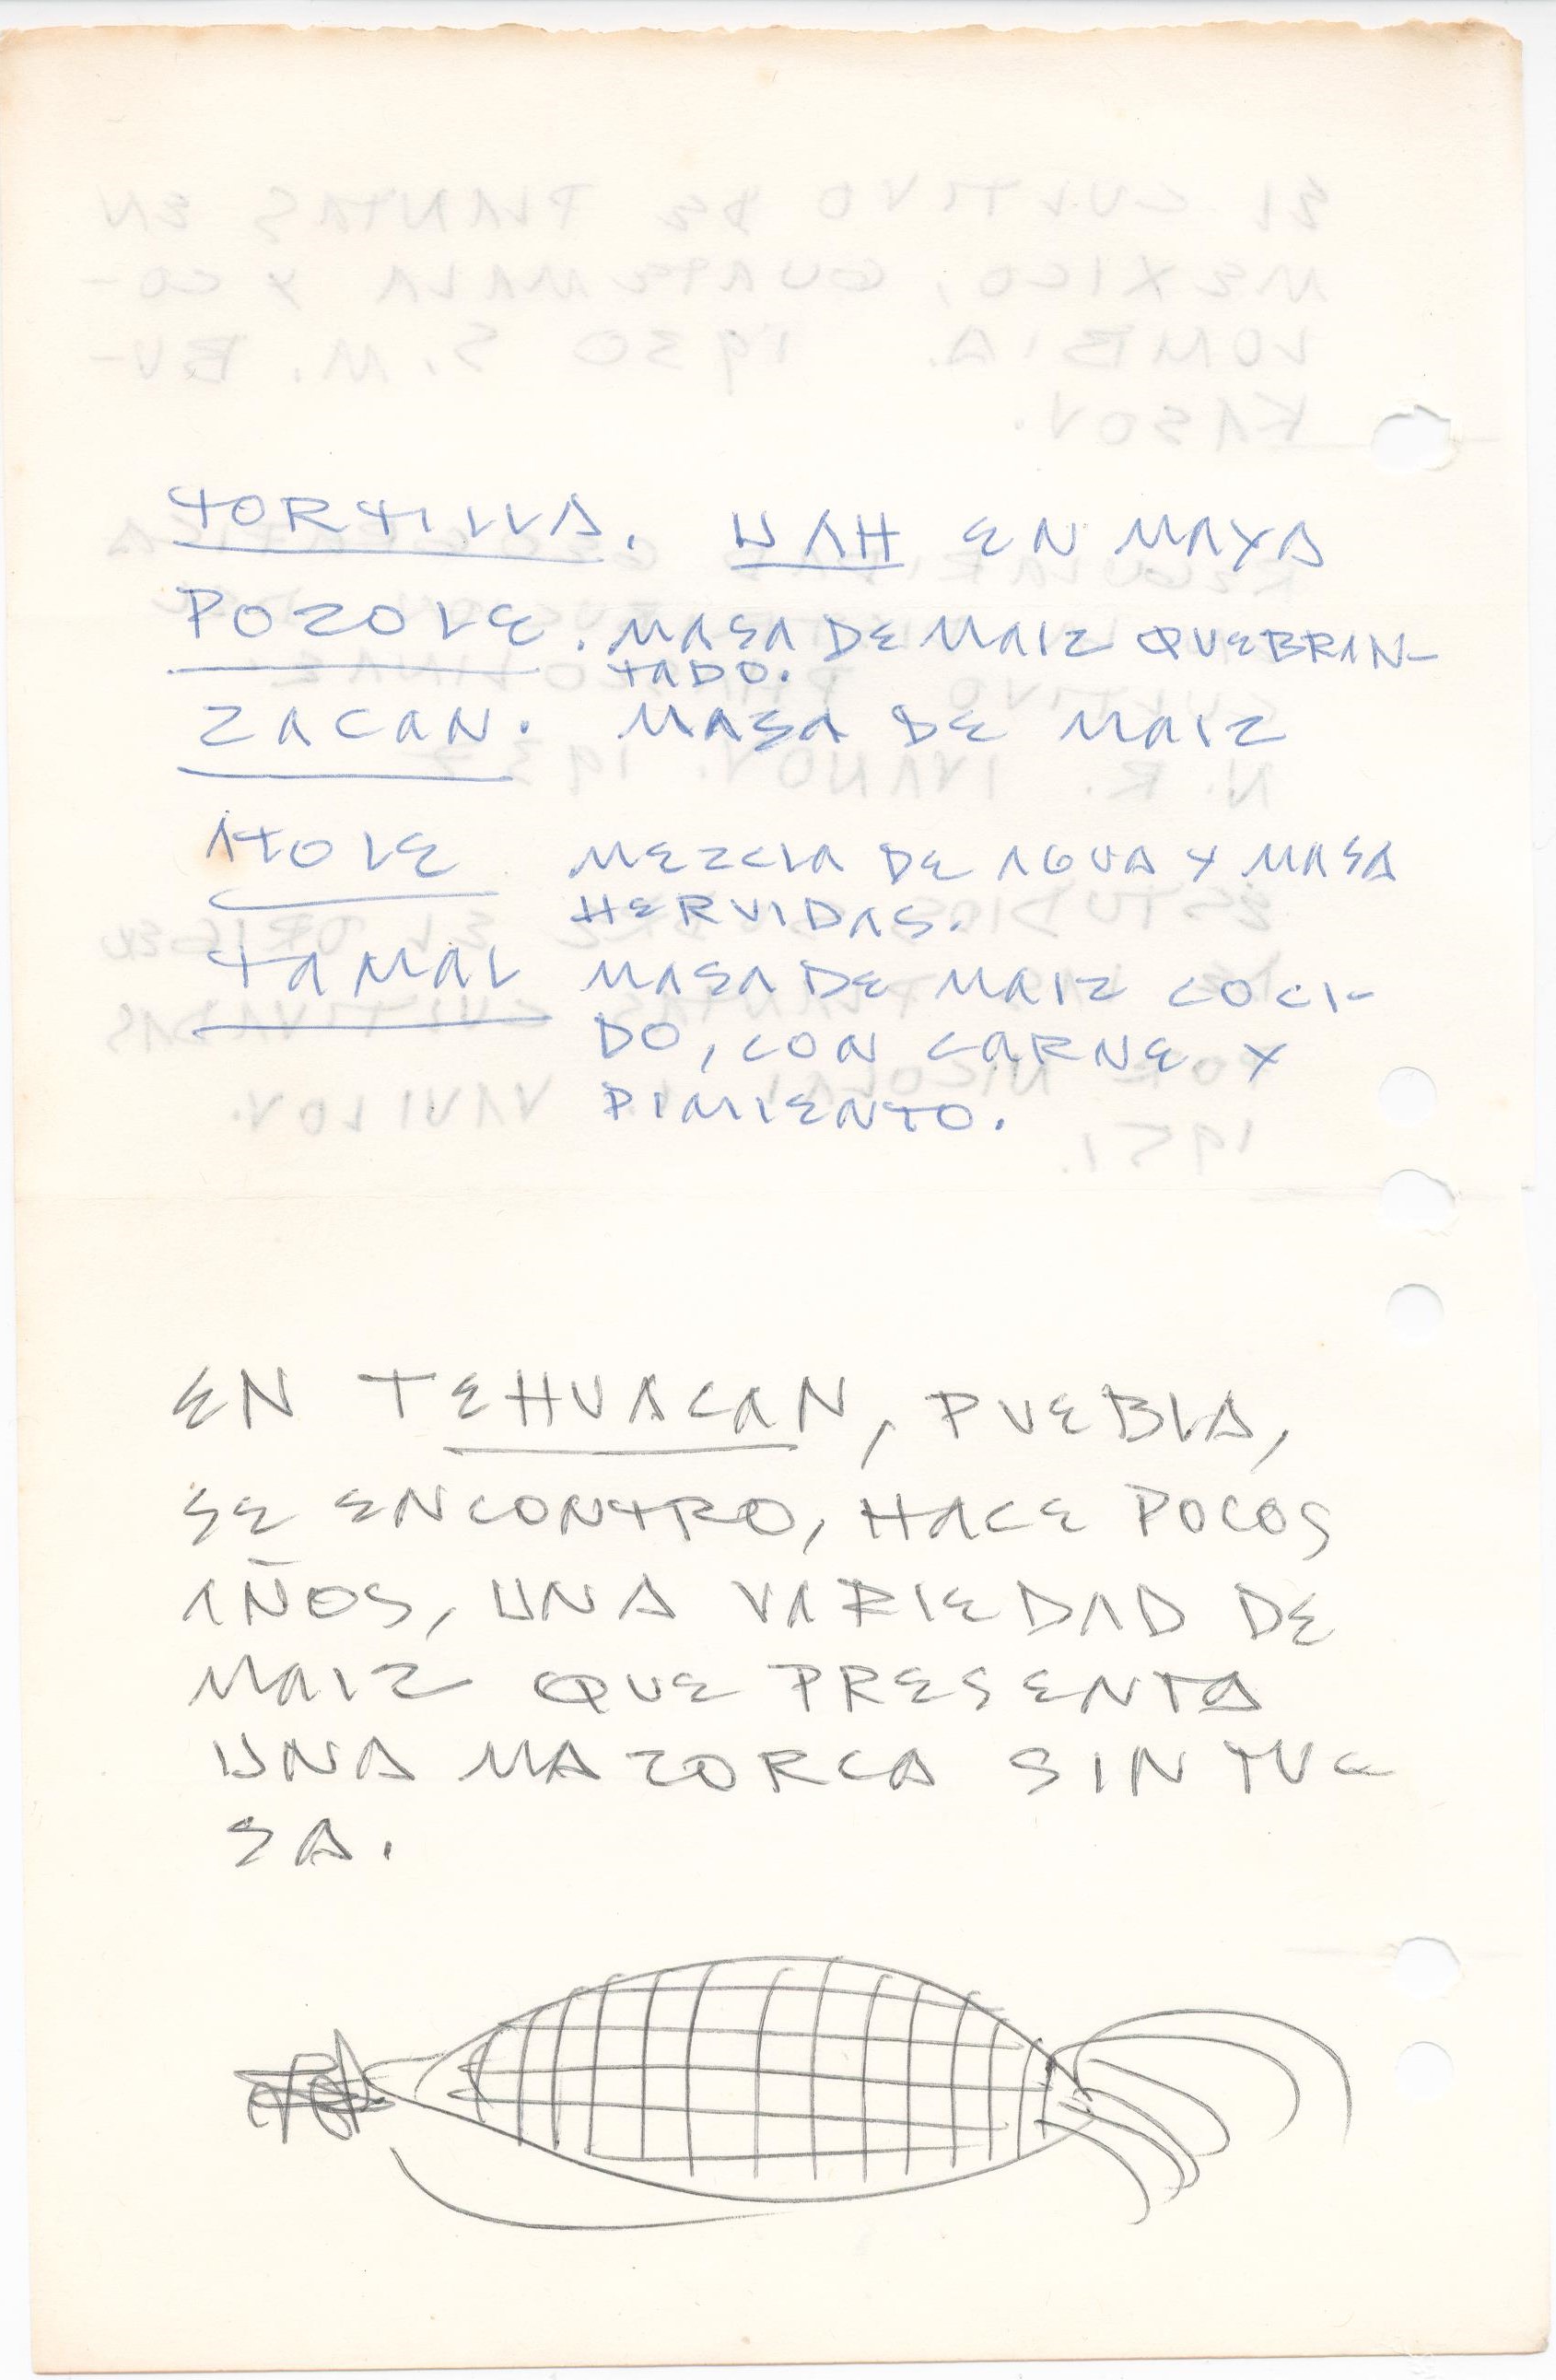 TORTILLA. UAH EN MAYA
POZOLE. MASA DE MAIZ QUEBRAN-
TADO.
ZACAN. MASA DE MAIZ
ATOLE MEZCLA DE AGUA Y MASA
HERVIDAS.
TAMAL MASA DE MAIZ COCI-
DO, CON CARNE Y
PIMIENTO.
EN TEHUACAN, PUEBLA,
SE ENCONTRO, HACE POCOS
AÑOS, UNA VARIEDAD DE
MAIZ QUE PRESENTA
UNA MAZORCA SIN TU-
SA.